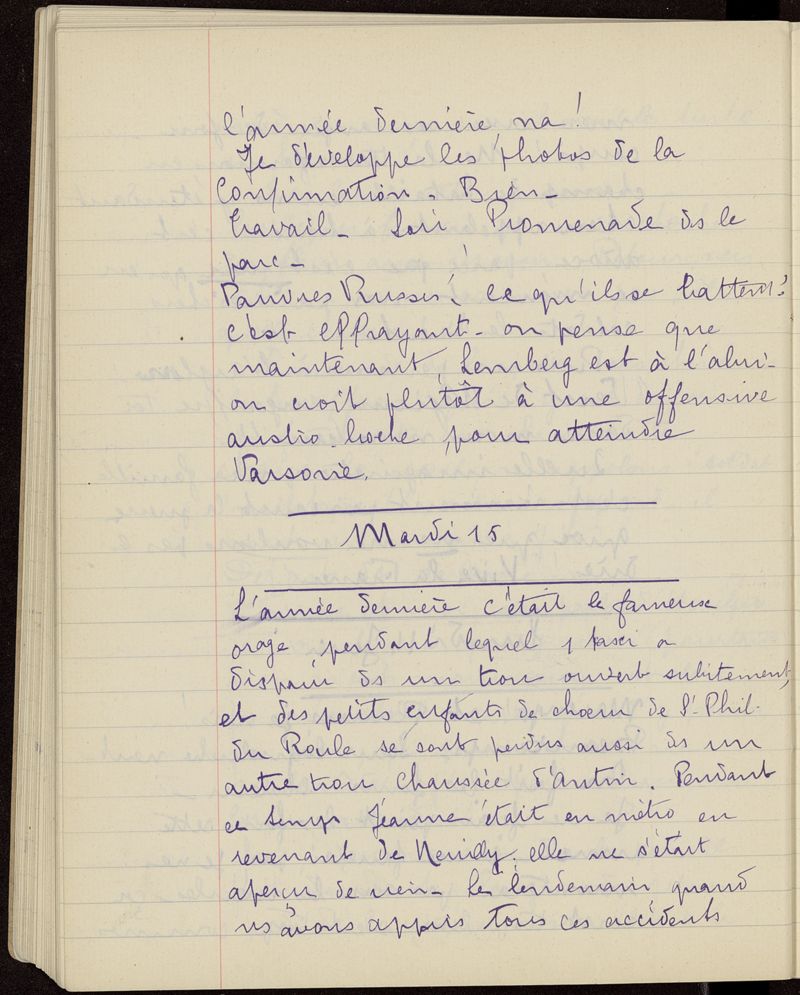 l'année dernière, na!
Je développe les photos de la
Confirmation. Bien-
travail - Promenade ds le
parc -
Pauvres Russes! ce qu'ils se battent!
c'est effrayant - on pense que
maintenant, Lemberg est à l'abri -
on croit plutôt à une offensive
austro-boche pour atteindre
Varsovie.
Mardi 15
L'année dernière c'était le fameux
orage pendant lequel 1 taxi a
disparu ds un trou ouvert subitement,
et des petits enfants de choeur de St Phil.
du Roule se sont perdus aussi ds un
autre trou chaussée d'Antin. Pendant
ce temps Jeanne était en métro en
revenant de Neuilly. elle ne s'était
aperçu de rien - le lendemain quand
ns avons appris tous ces accidents